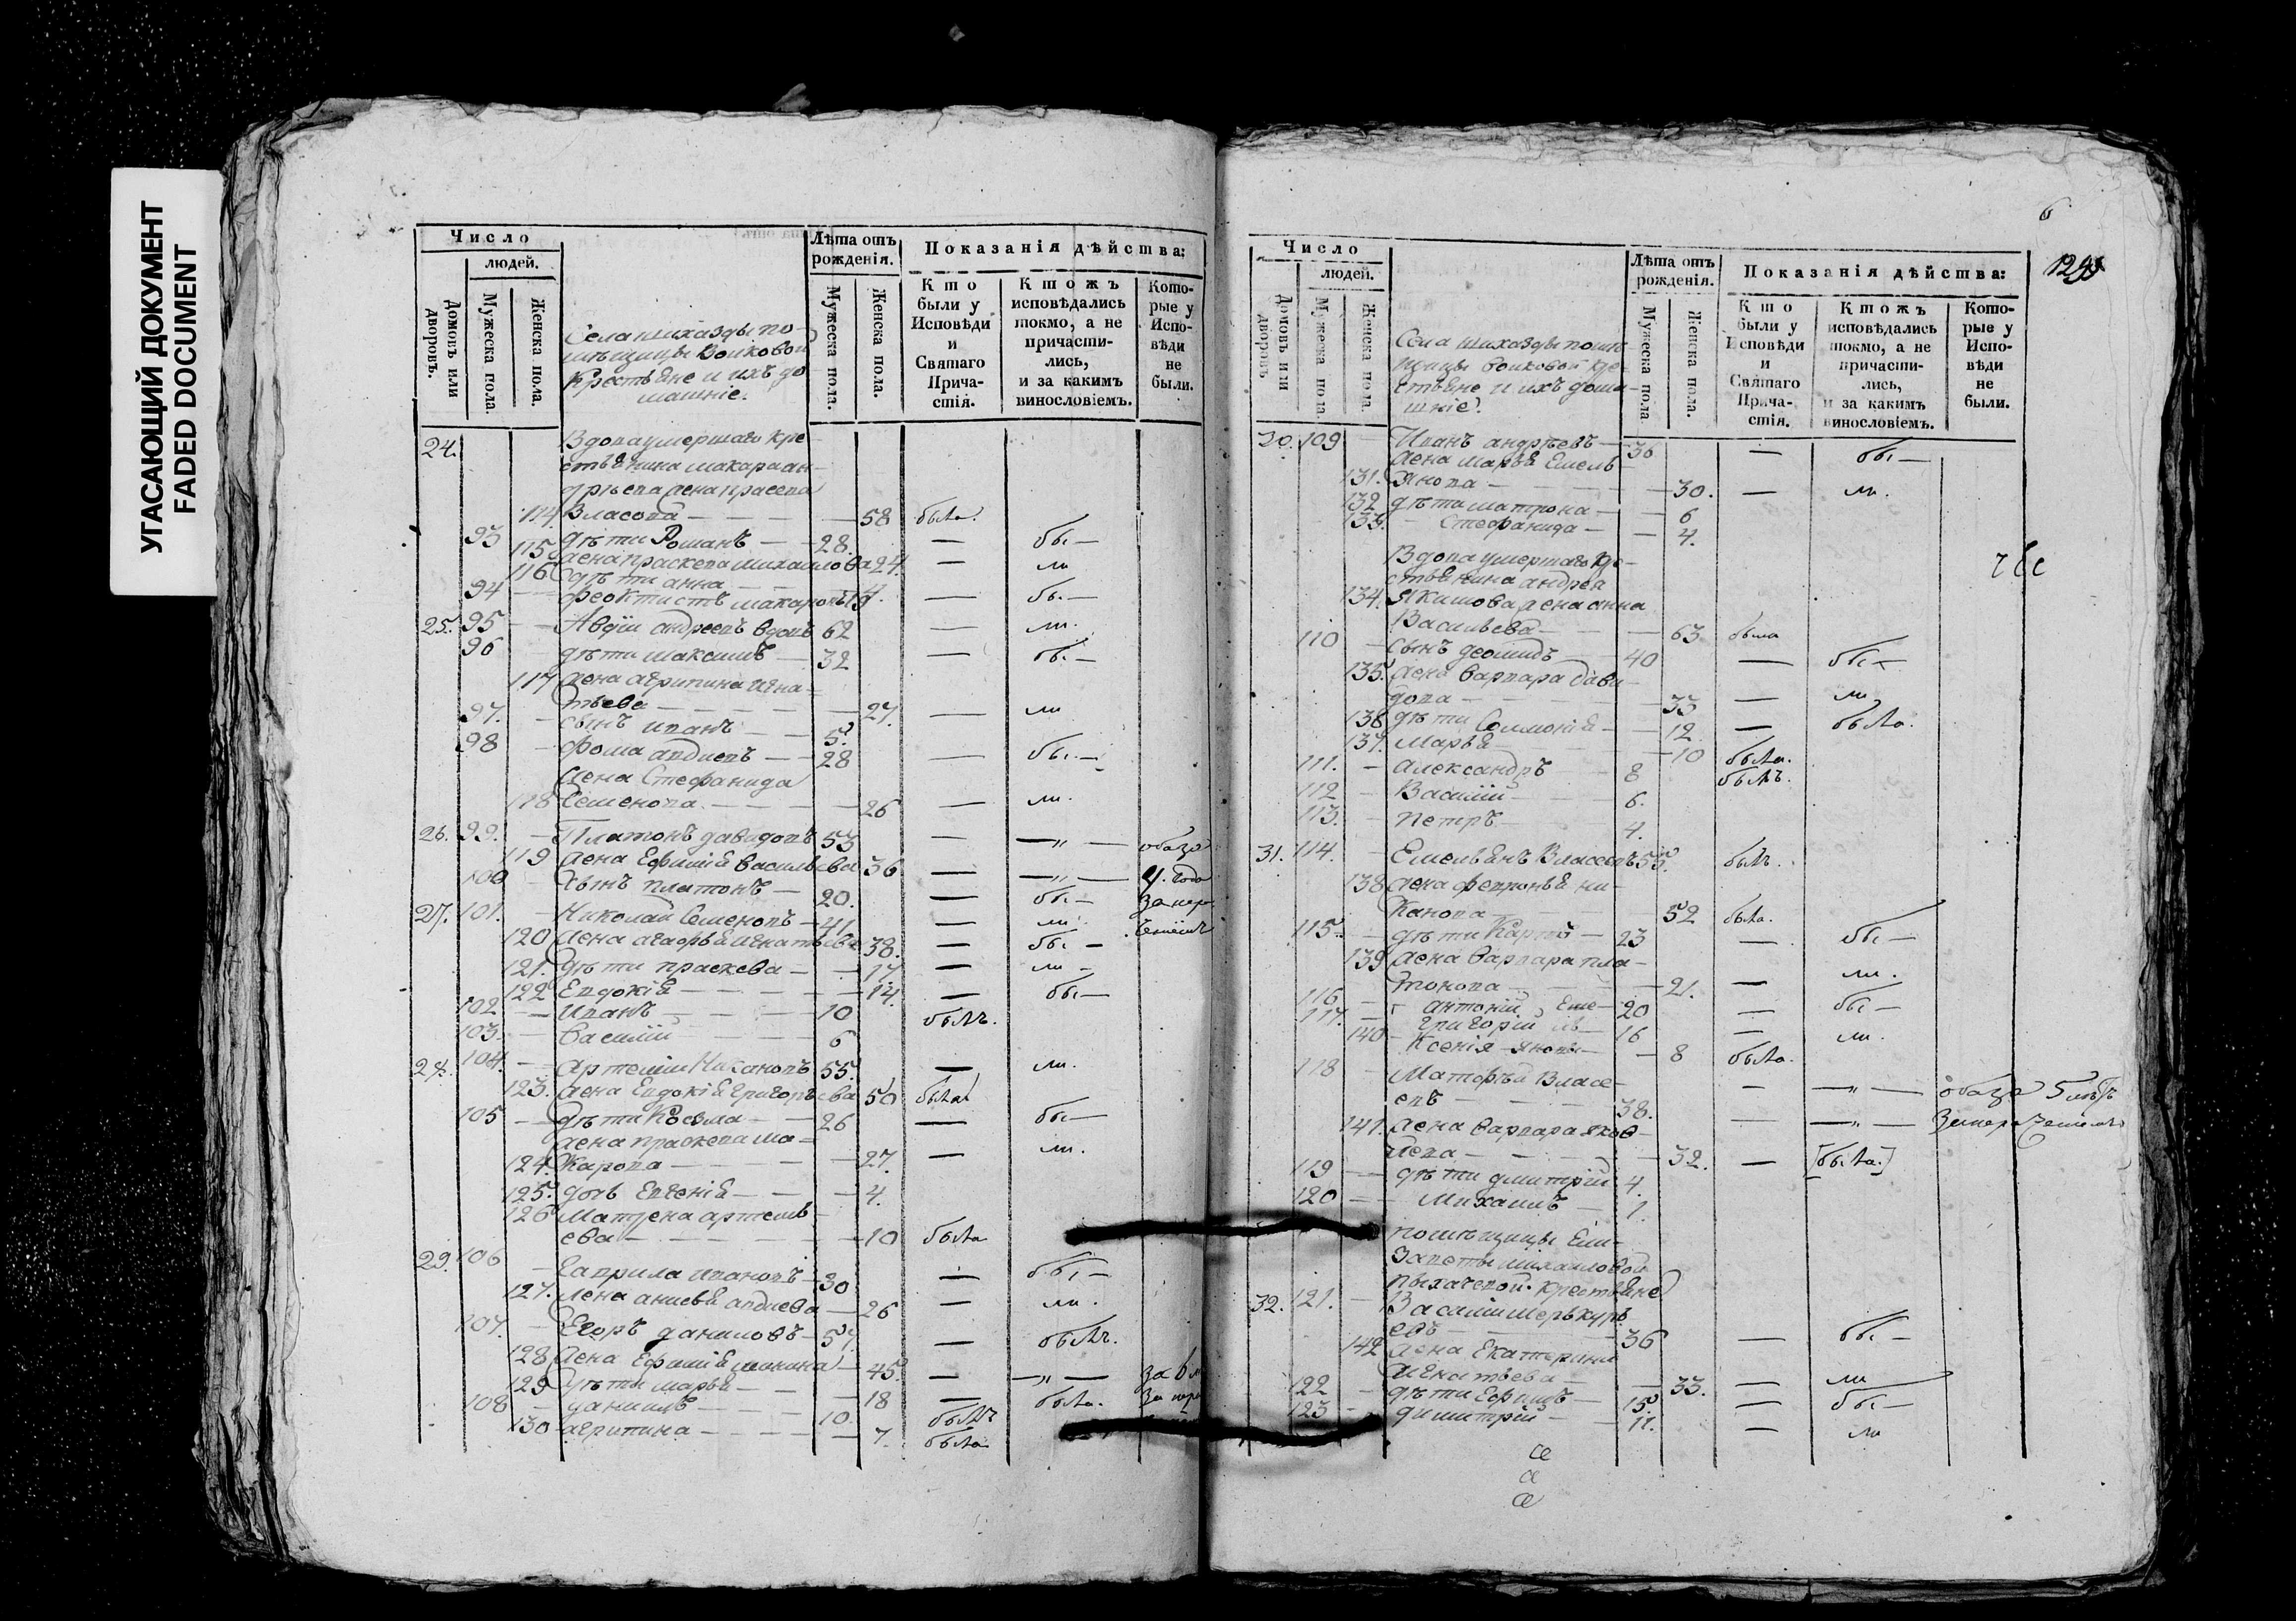 УГАСАЮЩИЙ ДОКУМЕНТ
FADED DOCUMENT
Число
людей.
Домовъ или дворовъ.
Мужеска пола.
Женска пола.
Лѣта отъ рожденія.
Мужеска пола.
Женска пола.
Показанія дѣйства:
Кто были у Исповѣди и Святаго Причастія.
Ктожъ исповѣдались токмо, а не причастились, и за какимъ винословіемъ.
Которые у Исповѣди не были.
Села по-
мѣщицы Волковой
крестьяне и ихъ до
машніе.
24. Вдова умершаго кре
стьянина макара ан-
дрѣева жена прасева
114 Власова 58 была.
93 дѣти Романъ 28. — бы —
115 жена праскева михаилова 24. — ли
116 дѣти анна
94 феоктистъ макаровъ — бы —
25. 95 Авдѣи андреевъ вдовъ 62 — ли.
96 дѣти максимъ 32 — бы —
117 жена агрипина игна=
тьева 27. — ли
97. сынъ иванъ 5.
98 фома авдиевъ 28 — бы —
жена Стефанида
118 Семенова 26 — ли.
26. 99. Платонъ давидовъ 53 — „ —
119 жена Ефимія васильева 36 — „ —
100 сынъ платонъ 20. — бы —
27. 101. Николай Семеновъ 41 — ли.
120 жена агафья игнатьева 38. — бы —
121. дѣти праскева 17. — ли —
122 Евдокія 14. — бы —
102 Иванъ 10 былъ.
103. Василий 6
28. 104. Артемии Никановъ 55. — ли.
123. жена Евдокія григорьева 50 была
105 дѣти Косма 26 — бы —
жена праскева ма=
124. карова 27. — ли.
125. дочь Евгенія 4.
126 Матрена артемь
ева 10 была
29. 106 Гаврила ивановъ 30 — бы —
127. жена анисья авдиева 26 — ли.
107. Егоръ даниловъ 57. — былъ.
128 жена Ефимія 45. — „ —
129 дѣти марья 18 — была.
108 даниилъ 10. былъ
130 агрипина 7. была
6
Число
людей.
Домовъ или дворовъ.
Мужеска пола.
Женска пола.
Лѣта отъ рожденія.
Мужеска пола.
Женска пола.
Показанія дѣйства:
Кто были у Исповѣди и Святаго Причастія.
Ктожъ исповѣдались токмо, а не причастились, и за какимъ винословіемъ.
Которые у Исповѣди не были.
Села помѣ
щицы волковой кре
стьяне и ихъ дома
шніе.
30. 109 Иванъ андреевъ 36 — бы —
жена марья Емель
131. янова 30. — ли.
132 дѣти матрона 6
133. Стефанида 4.
Вдова умершаго кре-
стьянина андрея
134. Якимова жена анна
Васильева 63 была
110 сынъ деомидъ 40 — бы —
135. жена варвара дави
дова 33 — ли
136 дѣти Соломонія 12 — была.
137. Марья 10 была.
111. александръ 8 былъ.
112 Василии 6.
113. петръ 4.
31. 114. Емельянъ Власовъ 55. былъ.
138 жена февронья ни-
канова 52 была.
115. дѣти Карпъ 23 — бы —
139 жена варвара пла-
тонова 21. — ли.
116 антоній Еме- 20 — бы —
117. григорій ль- 16 — ли.
140 Ксенія яновы 8 была.
118 Матфѣй Власо-
въ 38. — „ —
141. жена варвара яков-
лева 32. — [была.]
119 дѣти дмитрій 4.
120 Михаилъ 1.
помѣщицы Ели-
заветы михаиловой
крестьяне
32. 121. Василии меркурь
евъ 36 — бы —
142 жена Екатерина
игнатьева 33. — ли
122 дѣти Ефимъ 15. — бы —
123 димитрій 11. — ли